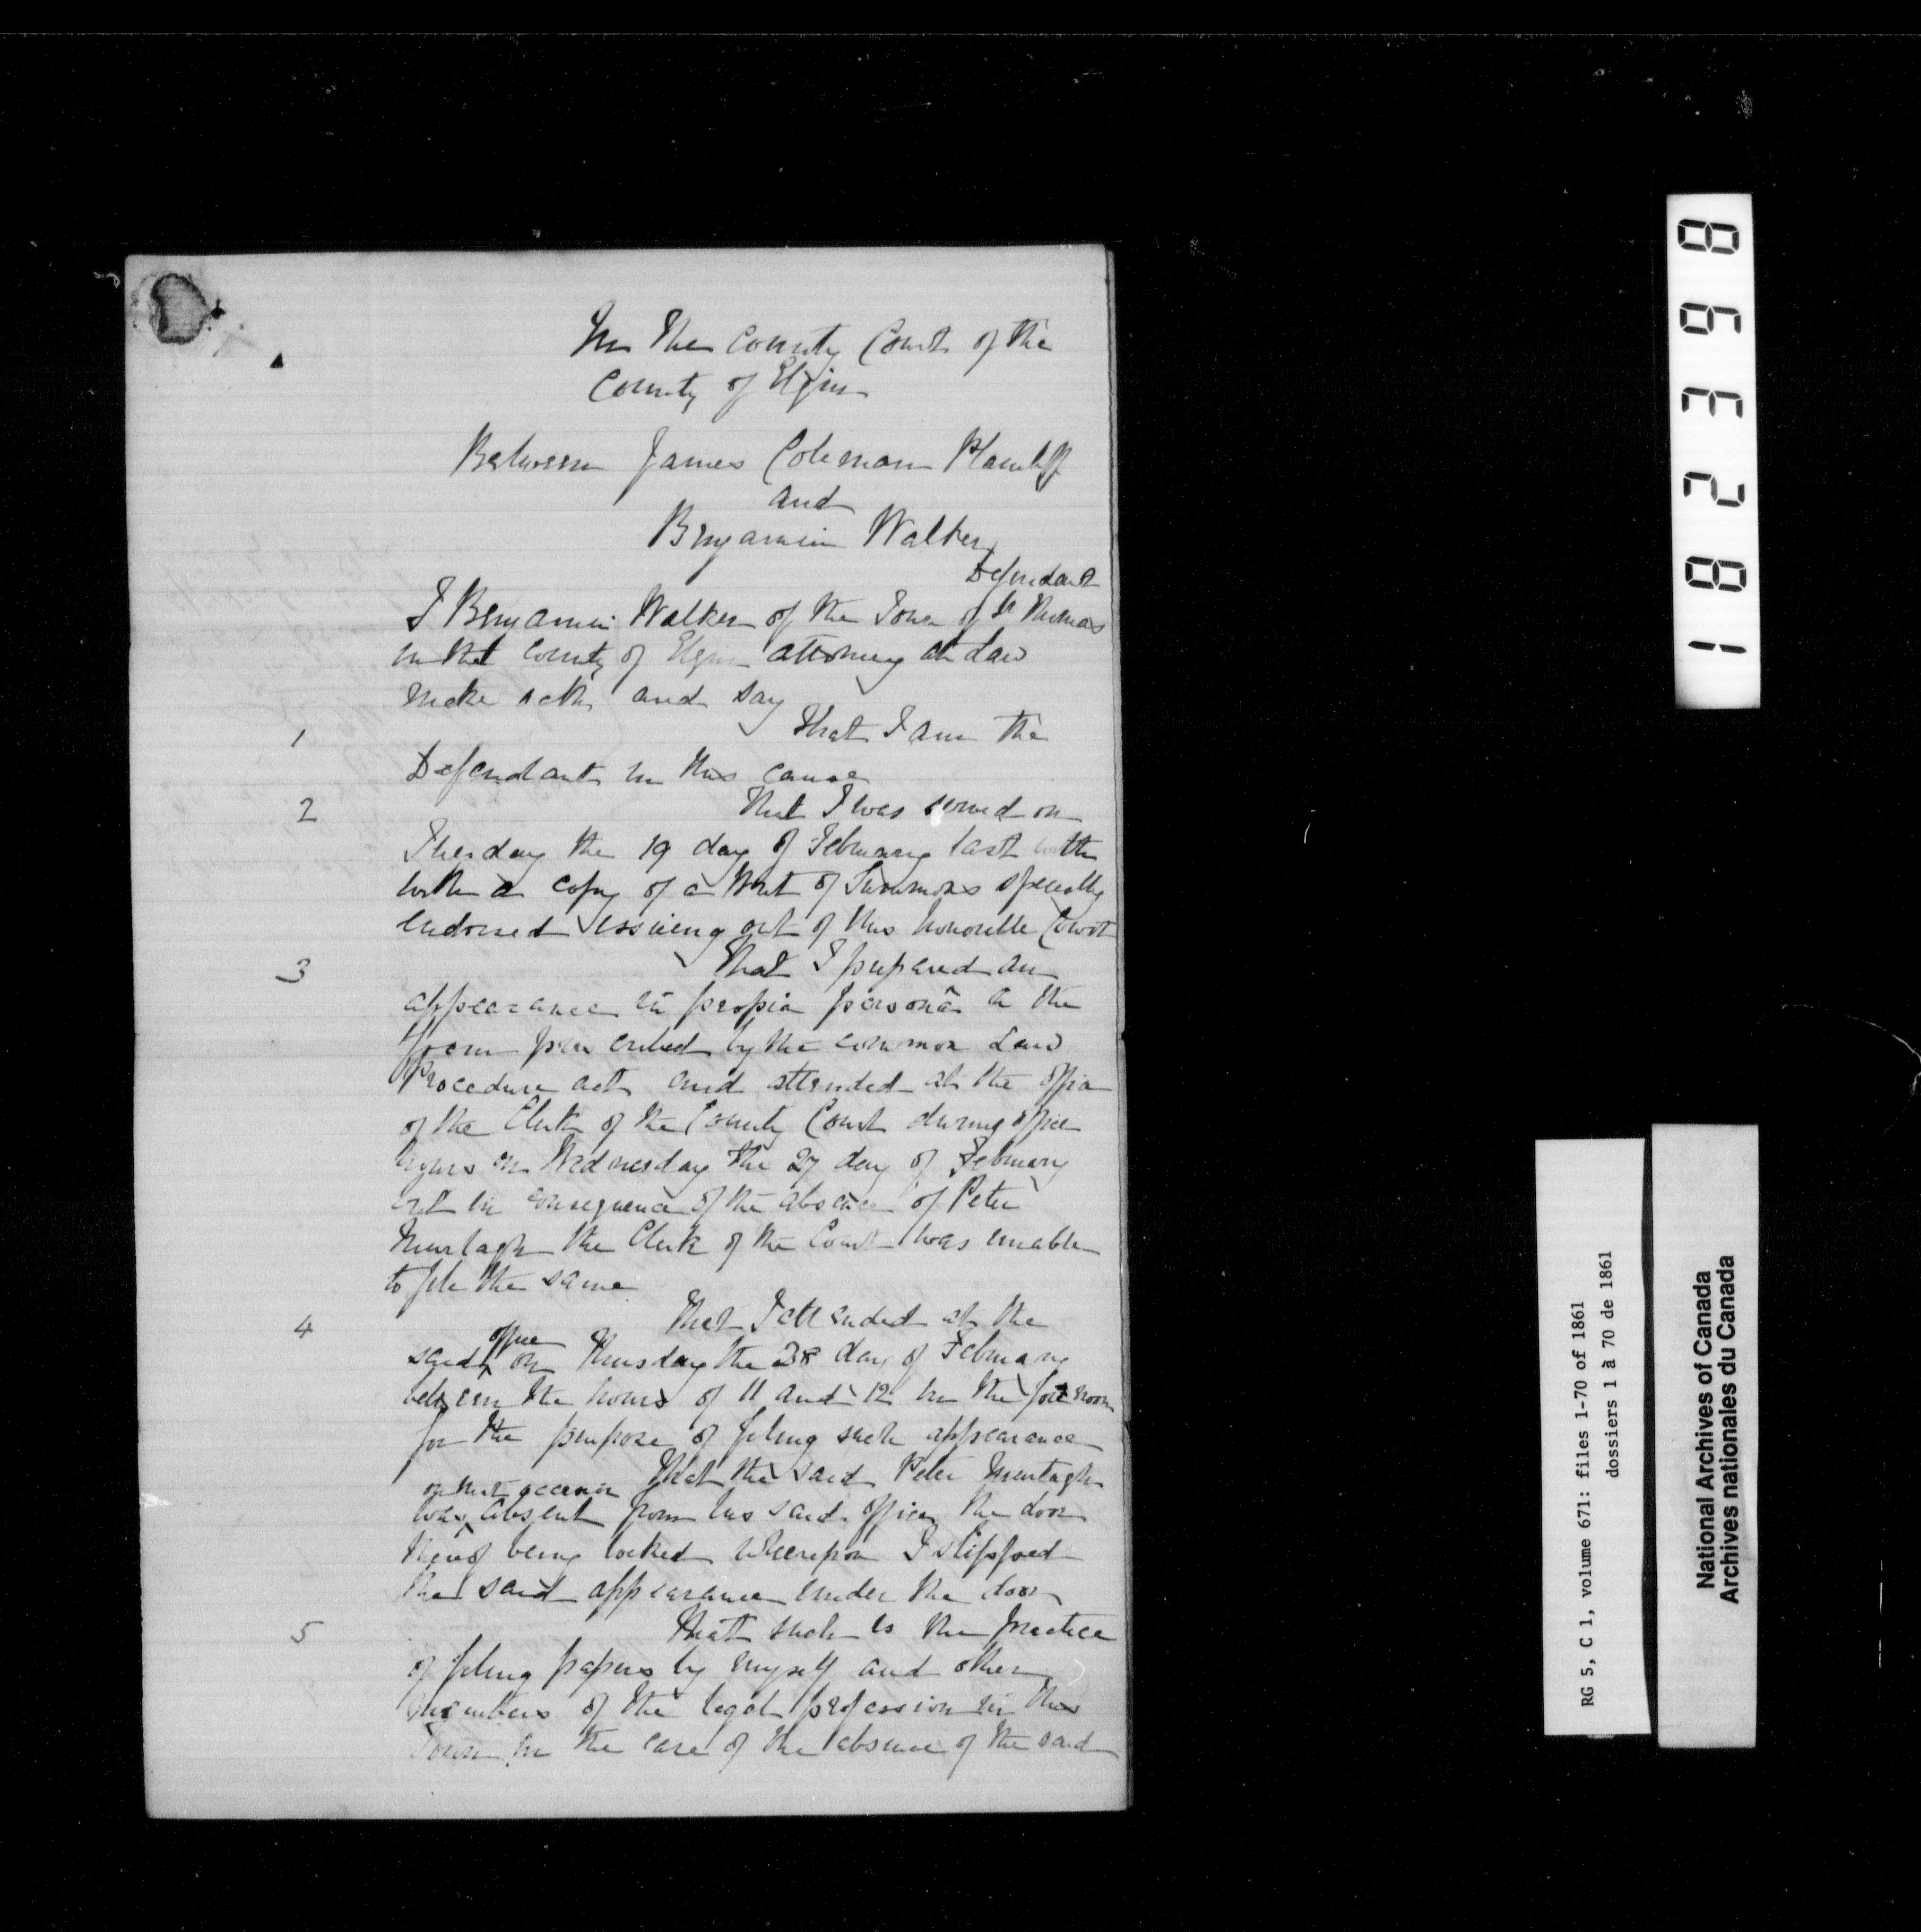 In the County Court of the
County of Elgin
Between James Coleman Plaintiff
and
Benjamin Walker
Defendant
I Benjamin Walker of the Town of St Thomas
in the County of Elgin attorney at Law
make oath and say
1 That I am the
Defendant in this cause
2 That I was served on
Tuesday the 19 day of February last with
with a copy of a Writ of Summons specially
endorsed issuing out of this honorable Court
3 That I prepared an
appearance in propia personâ in the
form prescribed by the common Law
Procedure act and attended at the office
of the Clerk of the County Court during office
hours on Wednesday the 27 day of February
but in consequence of the absence of Peter
Murtagh the Clerk of the Court was unable
to file the same
4 That I attended at the
said office on Thursday the 28 day of February
between the hours of 11 and 12 in the forenoon
for the purpose of filing such appearance
That the said Peter Murtagh
on that occasion
was absent from his said office the door
thereof being locked whereupon I slipped
the said appearance under the door
5 That such is the practice
of filing papers by myself and other
members of the legal profession in this
Town in the case of the absence of the said
182398
RG 5, C 1, volume 671: files 1-70 of 1861
dossiers 1 à 70 de 1861
National Archives of Canada
Archives nationales du Canada